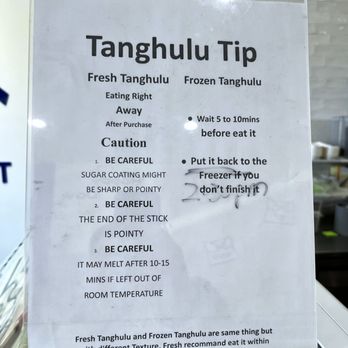 Tanghulu Tip
Fresh Tanghulu
Eating Right
Away
After Purchase
Caution
1. BE CAREFUL
SUGAR COATING MIGHT
BE SHARP OR POINTY
2. BE CAREFUL
THE END OF THE STICK
IS POINTY
3. BE CAREFUL
IT MAY MELT AFTER 10-15
MINS IF LEFT OUT OF
ROOM TEMPERATURE
Frozen Tanghulu
• Wait 5 to 10mins
before eat it
• Put it back to the
Freezer if you
don't finish it
Fresh Tanghulu and Frozen Tanghulu are same thing but
different Texture. Fresh recommand eat it within